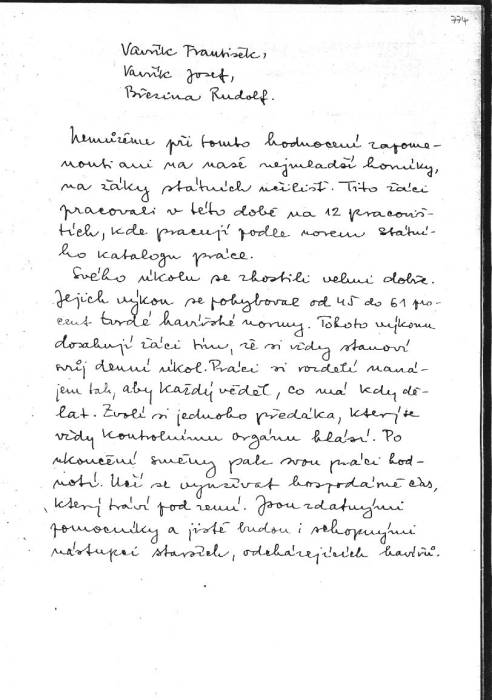 774
Vavřík František,
Vavřík Josef,
Březina Rudolf.
Nemůžeme při tomto hodnocení zapome-
nouti ani na naše nejmladší horníky,
na žáky státních učilišť. Tito žáci
pracovali v této době na 12 pracoviš-
tích, kde pracují podle norem státní-
ho katalogu práce.
Svého úkolu se zhostili velmi dobře.
Jejich výkon se pohyboval od 45 do 61 pro-
cent tvrdé havířské normy. Tohoto výkonu
dosahují žáci tím, že si vždy stanoví
svůj denní úkol. Práci si rozdělí naná-
jem tak, aby každý věděl, co má kdy dě-
lat. Zvolí si jednoho předáka, který se
vždy kontrolnímu orgánu hlásí. Po
ukončení směny pak svou práci hod-
notí. Učí se využívat hospodárně čas,
který tráví pod zemí. Jsou zdatnými
pomocníky a jistě budou i schopnými
nástupci starších, odcházejících havířů.